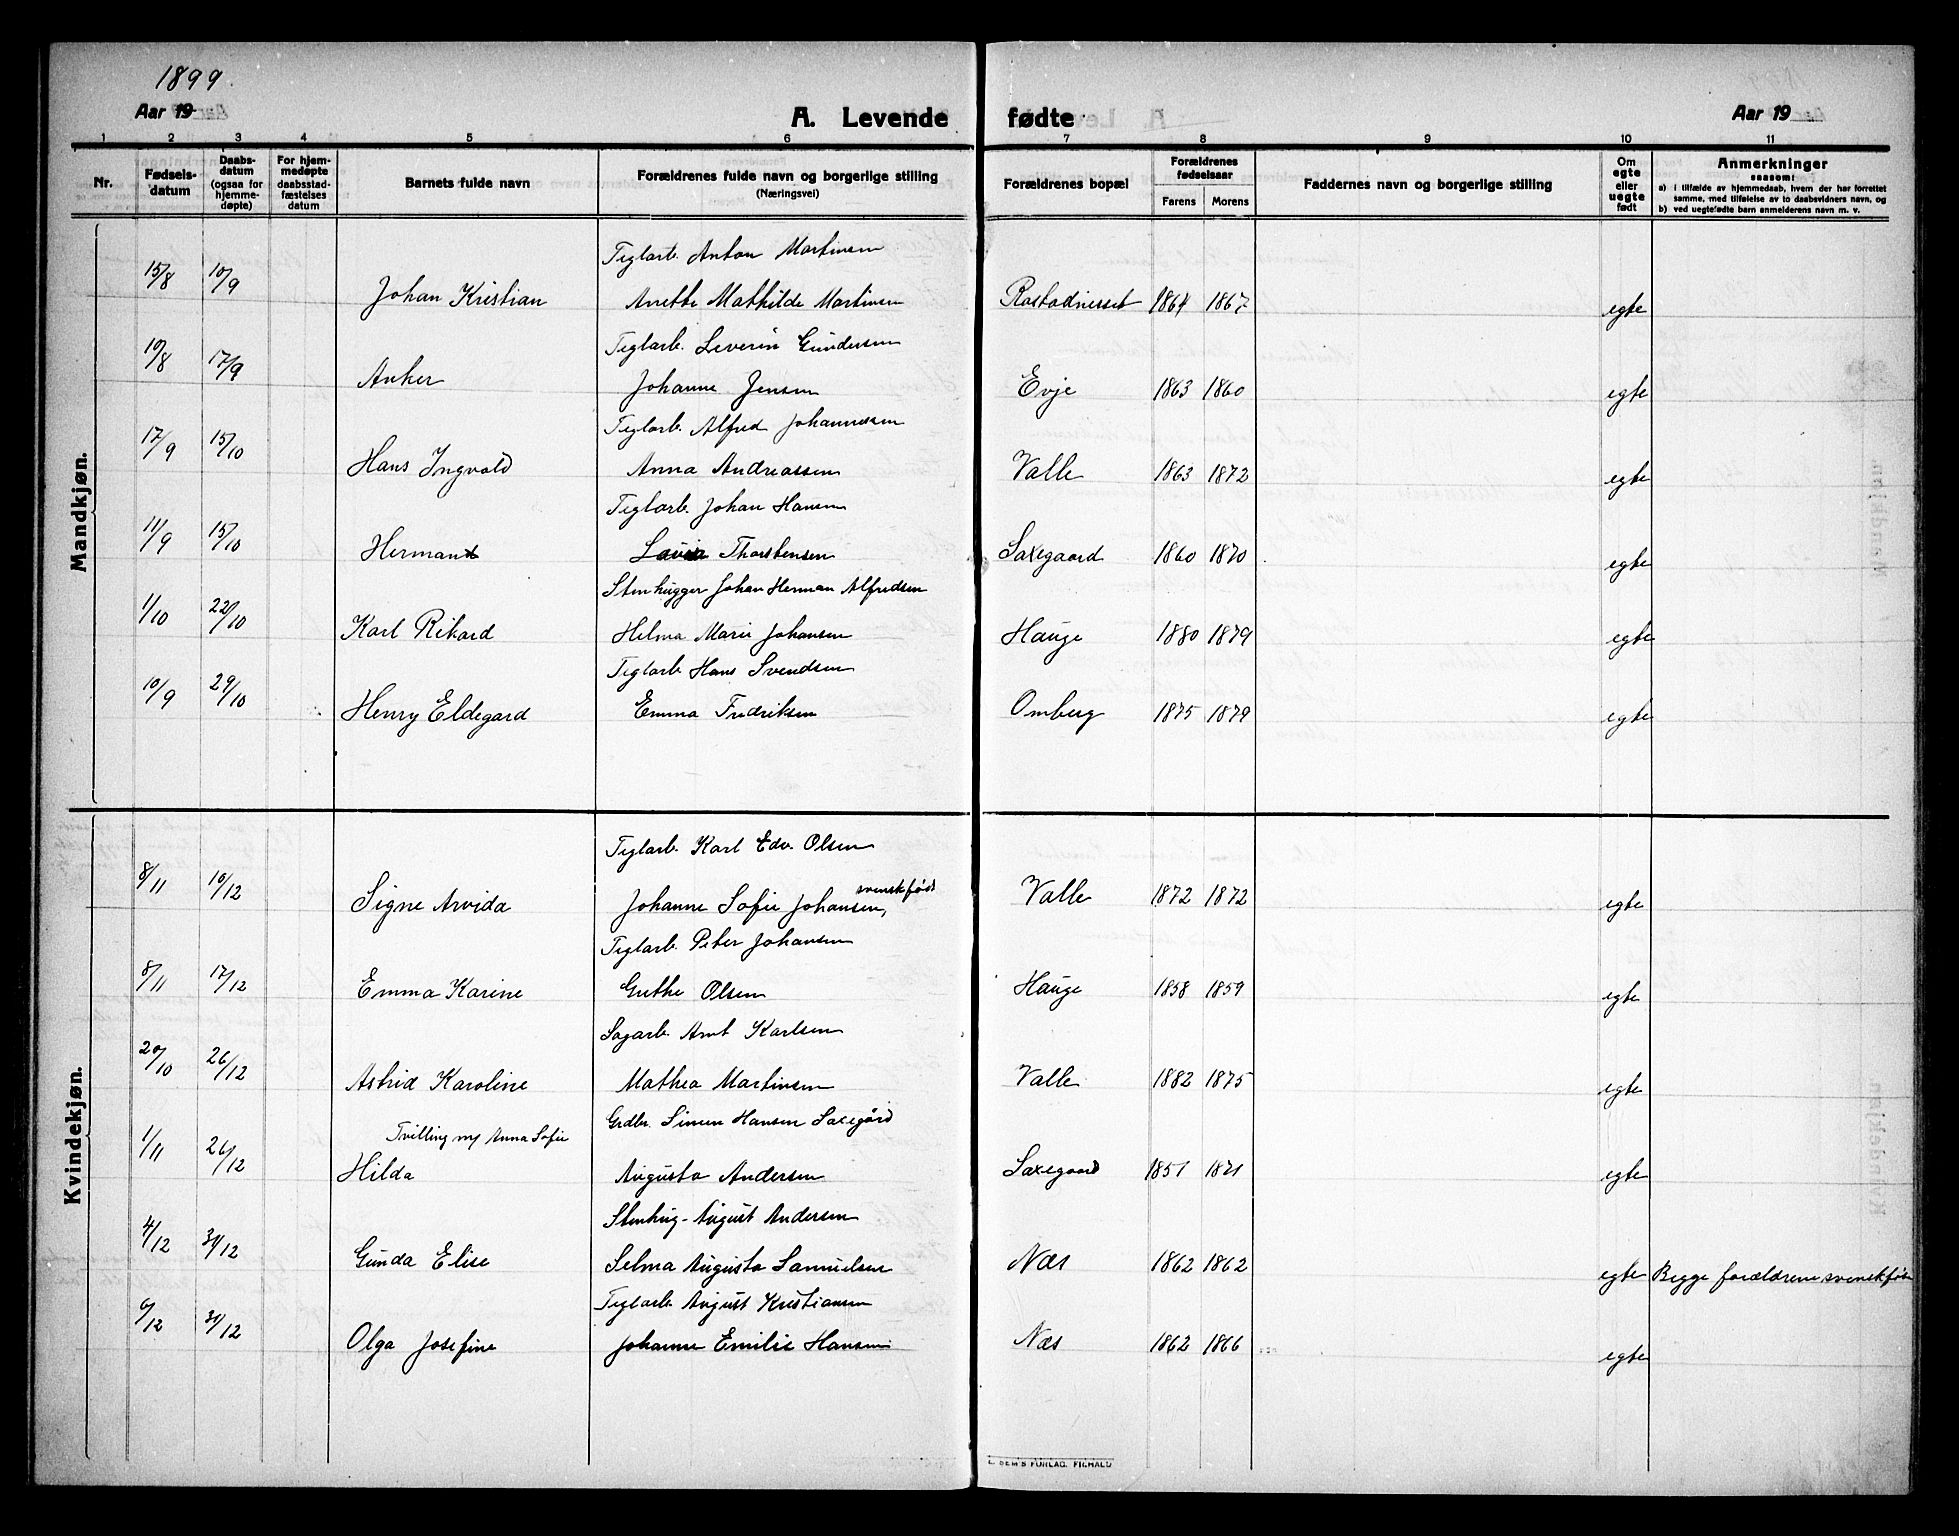 1899.
Aar 19
A. Levende fødte
Aar 19
1 2 3 4 5 6 7 8 9 10 11
Nr.
Fødsels-
datum
Daabs-
datum
(ogsaa for
hjemme-
døpte)
For hjem-
medøpte
daabsstad-
fæstelses
datum
Barnets fulde navn
Forældrenes fulde navn og borgerlige stilling
(Næringsvei)
Forældrenes bopæl
Forældrenes
fødselsaar
Farens Morens
Faddernes navn og borgerlige stilling
Om
egte
eller
uegte
født
Anmerkninger
saasom:
a) i tilfælde av hjemmedaab, hvem der har forrettet
samme, med tilføielse av to daabsvidners navn, og
b) ved uegtefødte barn anmelderens navn m. v.
Mandkjøn.
Teglarb. Anton Martinsen
15/8 10/9 Johan Kristian Anette Mathilde Martinsen Rostadnesset 1864 1867 egte
Teglarb. Leverin Gundersen
10/8 17/9 Anker Johanne Jensen Evje 1863 1860 egte
Teglarb. Alfred Johannesen
17/9 15/10 Hans Ingvald Anna Andreassen Valle 1863 1872 egte
Teglarb. Johan Hansen
11/9 15/10 Herman Thorstensen Saxegaard 1860 1870 egte
Stenhugger Johan Herman Alfredsen
1/10 22/10 Karl Rikard Helma Marie Johansen Hauge 1880 1879 egte
Teglarb. Hans Svendsen
10/9 29/10 Henry Eldegard Emma Fredriksen Omberg 1875 1879 egte
Kvindekjøn.
Teglarb. Karl Edv. Olsen
svenskfødt
8/11 10/12 Signe Arvida Johanne Sofie Johansen, Valle 1872 1872 egte
Teglarb. Peter Johansen
8/11 17/12 Emma Karine Grethe Olsen Hauge 1858 1859 egte
Sagarb. Arnt Karlsen
20/10 26/12 Astrid Karoline Mathea Martinsen Valle 1882 1875 egte
Grdbr. Simen Hansen Saxegård
Tvilling m/ Anna Sofie
1/11 26/12 Hilda Augusta Andersen Saxegaard 1851 1871 egte
Stenhug- August Andersen
4/12 31/12 Gunda Elise Selma Augusta Samuelsen Næs 1862 1862 egte Begge forældrene svenskfødt
Teglarb. August Kristiansen
6/12 31/12 Olga Josefine Johanne Emilie Hansen Næs 1862 1866 egte
E. SEM'S FORLAG. FR.HALD